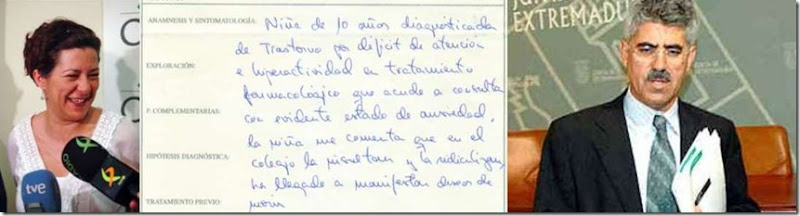 ANAMNESIS Y SINTOMATOLOGÍA:
Niña de 10 años diagnosticada
de Trastorno por déficit de atención
EXPLORACIÓN:
e hiperactividad en tratamiento
farmacológico que acude a consulta
P. COMPLEMENTARIAS:
con evidente estado de ansiedad.
la niña me comenta que en el
HIPÓTESIS DIAGNÓSTICA:
colegio la insultan y la ridiculizan,
ha llegado a manifestar deseos de
TRATAMIENTO PREVIO:
morir
tve
EXTREMADURA
JUNTA DE EXTREMADURA